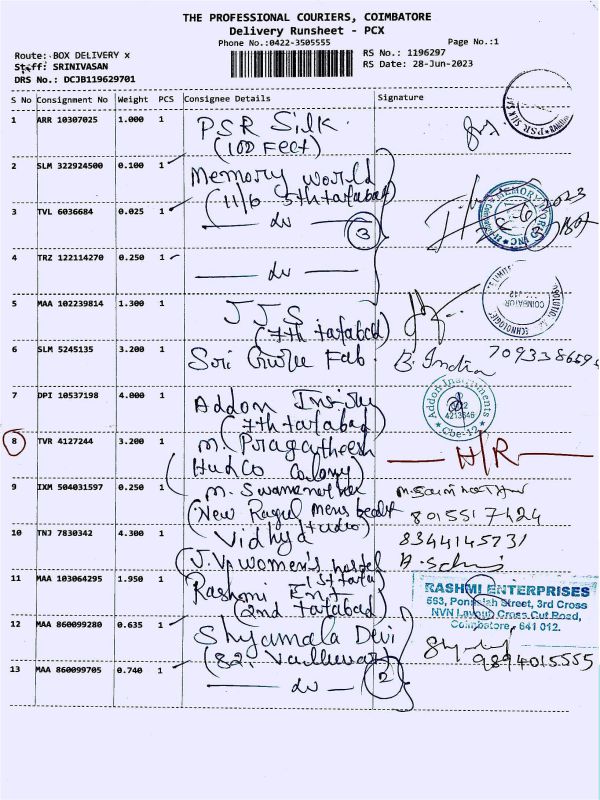 THE PROFESSIONAL COURIERS, COIMBATORE
Delivery Runsheet - PCX
Phone No.:0422-3505555
Page No.:1
Route: BOX DELIVERY x
RS No.: 1196297
Staff: SRINIVASAN
RS Date: 28-Jun-2023
DRS No.: DCJB119629701
S No Consignment No Weight PCS Consignee Details Signature
1 ARR 10307025 1.000 1 PSR Silk.
(100 Feet)
2 SLM 322924500 0.100 1 Memory world
(11/6 5th tatabad)
3 TVL 6036684 0.025 1 — du —
3
4 TRZ 122114270 0.250 1 — du —
5 MAA 102239814 1.300 1 JJS
(7th tatabad)
6 SLM 5245135 3.200 1 Sri Guru Fab. B. Indra
7 DPI 10537198 4.000 1 Addon
(7th tatabad)
Addon Instruments
Cbe-12
8 TVR 4127244 3.200 1 M. Pragatheesh
(Hudco Colony)
9 IXM 504031597 0.250 1 M.
(New Ragul mens
8015517424
10 TNJ 7830342 4.300 1 Vidhya 8344145731
(J.V. women's hostel
1st tata)
11 MAA 103064295 1.950 1 Rashmi Ent
(2nd tatabad)
RASHMI ENTERPRISES
Street, 3rd Cross
NVN Layout Cross Cut Road,
Coimbatore, 641 012.
12 MAA 860099280 0.635 1 Shyamala Devi
(82,
9894015555
13 MAA 860099705 0.740 1 — du —
2